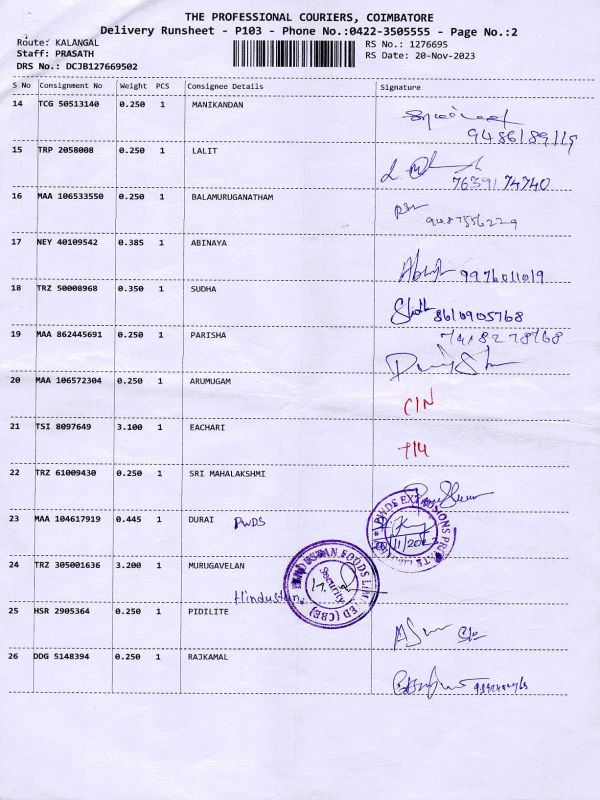 THE PROFESSIONAL COURIERS, COIMBATORE
Delivery Runsheet - P103 - Phone No.:0422-3505555 - Page No.:2
Route: KALANGAL
Staff: PRASATH
DRS No.: DCJB127669502
RS No.: 1276695
RS Date: 20-Nov-2023
S No Consignment No Weight PCS Consignee Details Signature
14 TCG 50513140 0.250 1 MANIKANDAN
9486189119
15 TRP 2058008 0.250 1 LALIT
7639174740
16 MAA 106533550 0.250 1 BALAMURUGANATHAM
9487556229
17 NEY 40109542 0.385 1 ABINAYA
9976011019
18 TRZ 50008968 0.350 1 SUDHA
8610905768
19 MAA 862445691 0.250 1 PARISHA
7418278768
20 MAA 106572304 0.250 1 ARUMUGAM
C/N
21 TSI 8097649 3.100 1 EACHARI
T14
22 TRZ 61009430 0.250 1 SRI MAHALAKSHMI
23 MAA 104617919 0.445 1 DURAI PWDS
PWDS EXTRUSIONS
24 TRZ 305001636 3.200 1 MURUGAVELAN
Hindustan
HINDUSTAN FOODS LIMITED (CBE)
Security
25 HSR 2905364 0.250 1 PIDILITE
26 DDG 5148394 0.250 1 RAJKAMAL